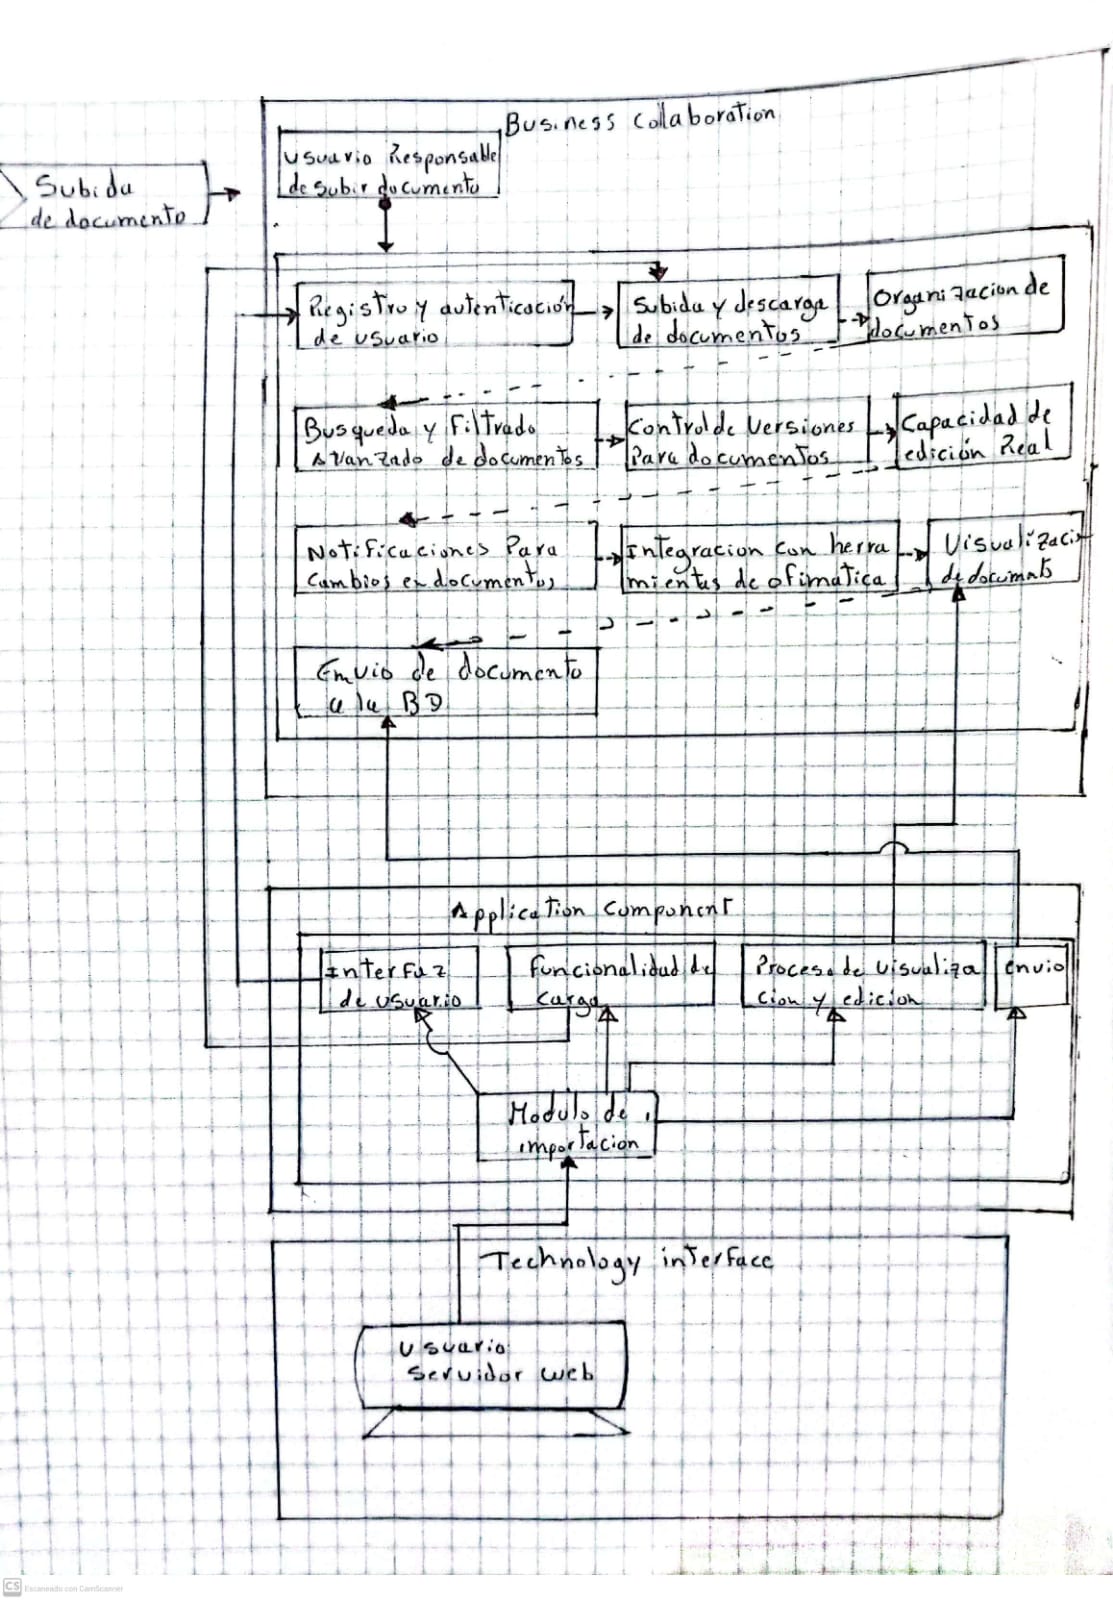 Business Collaboration
Usuario Responsable
de subir documento
Subida
de documento
Registro y autenticación
de usuario
Subida y descarga
de documentos
Organizacion de
documentos
Busqueda y Filtrado
Avanzado de documentos
Control de Versiones
Para documentos
Capacidad de
edición Real
Notificaciones Para
Cambios en documentos
Integracion con herra
mientas de ofimatica
Visualizaci
de documnts
Envio de documento
a la BD
Application Component
Interfaz
de usuario
Funcionalidad de
Carga
Proceso de visualiza
cion y edicion
envio
Modulo de
importacion
Technology interface
Usuario
Servidor web
CS Escaneado con CamScanner